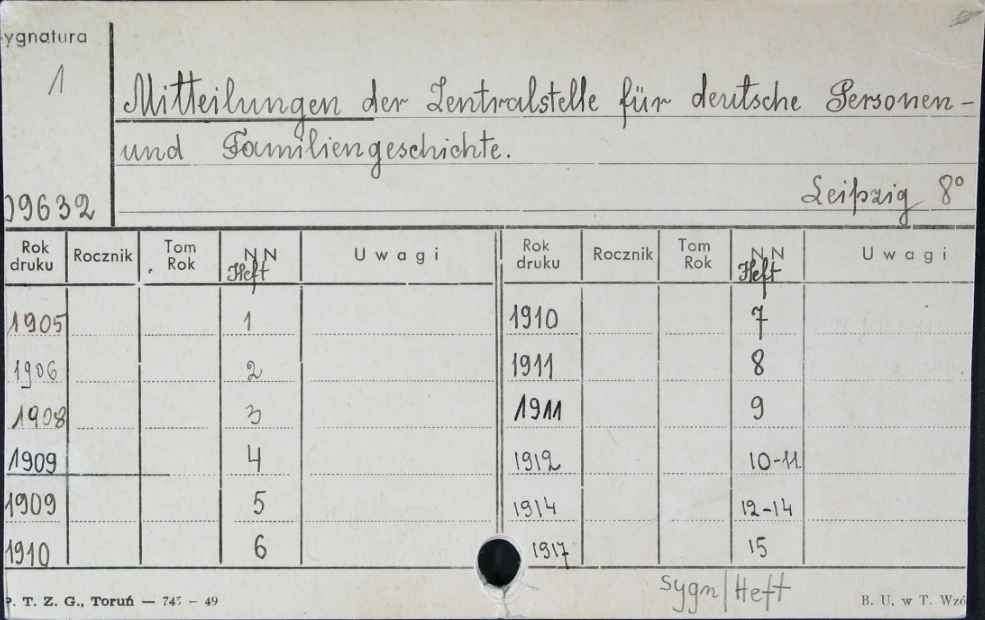 ygnatura
1
Mitteilungen der Zentralstelle für deutsche Personen-
und Familiengeschichte.
Leipzig 8°
09632
Rok druku Rocznik Tom Rok NN Heft Uwagi Rok druku Rocznik Tom Rok NN Heft Uwagi
1905 1 1910 7
1906 2 1911 8
1908 3 1911 9
1909 4 1912 10-11
1909 5 1914 12-14
1910 6 1917 15
Sygn/Heft
P. T. Z. G., Toruń — 745 – 49 B. U. w T. Wzó